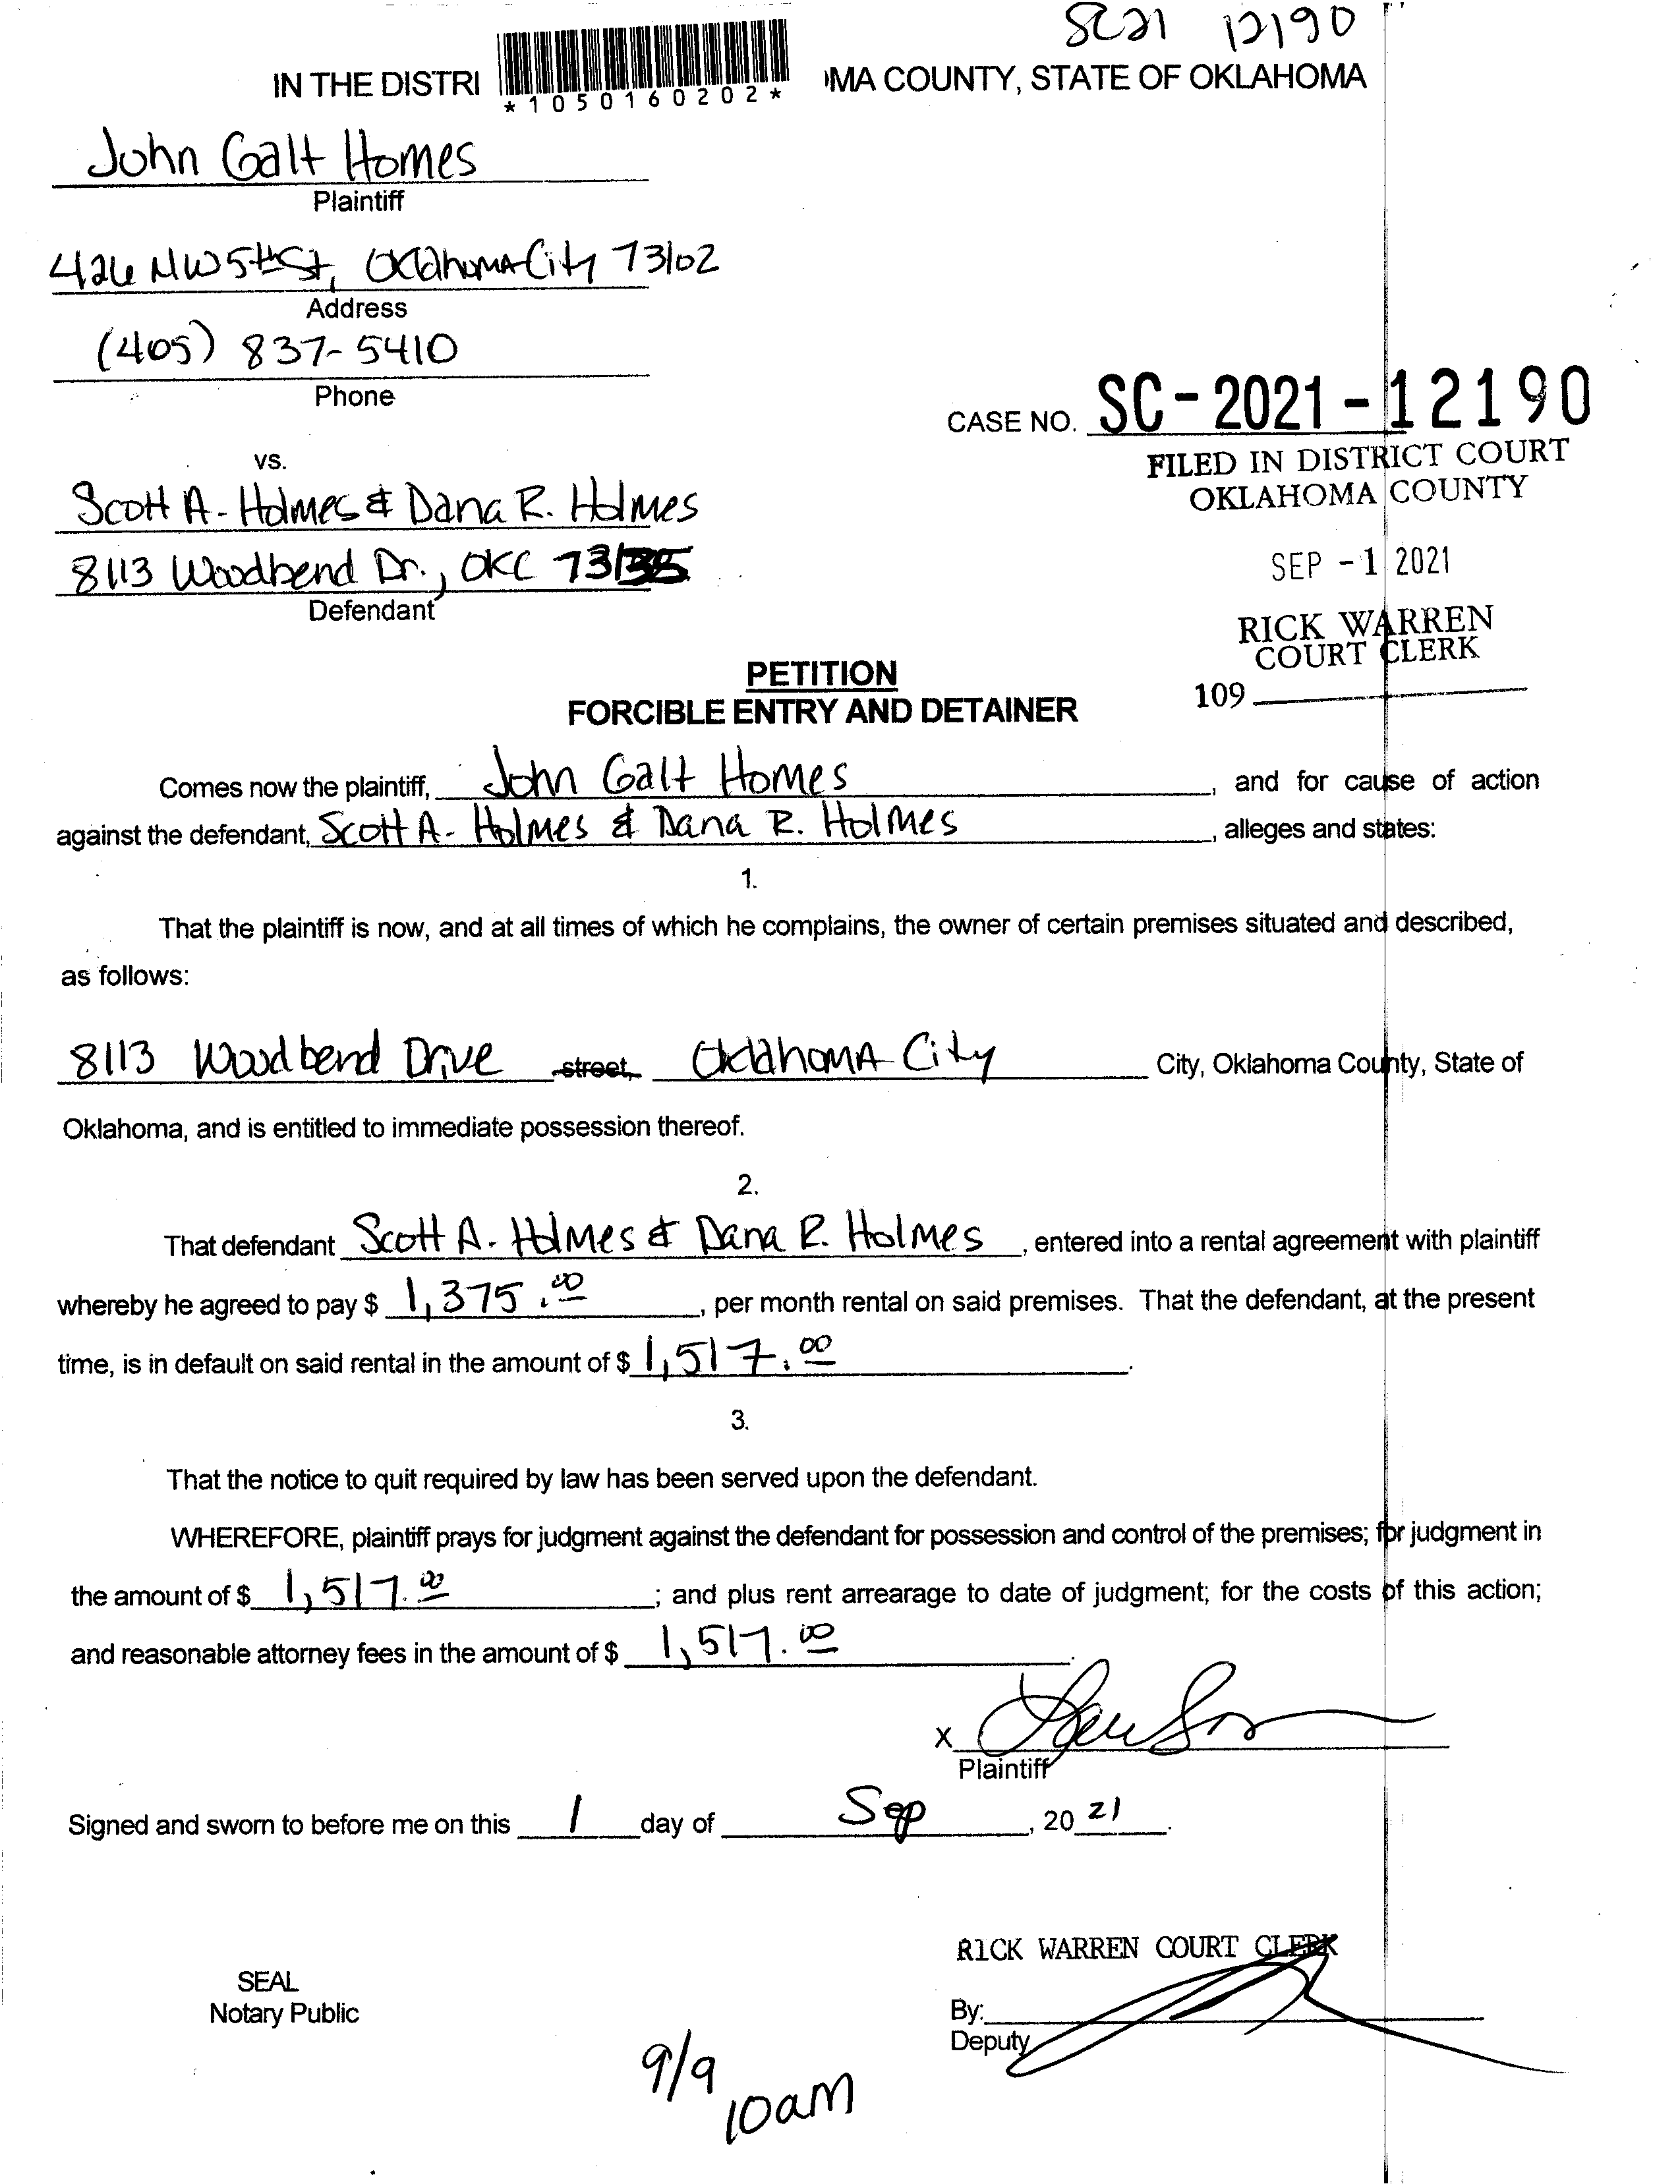 SC21 12190
IN THE DISTRI MA COUNTY, STATE OF OKLAHOMA
*1050160202*
John Galt Homes
Plaintiff
426 NW 5th St, Oklahoma City 73102
Address
(405) 837-5410
Phone
CASE NO. SC-2021-12190
FILED IN DISTRICT COURT
OKLAHOMA COUNTY
SEP -1 2021
RICK WARREN
COURT CLERK
109
vs.
Scott A. Holmes & Dana R. Holmes
8113 Woodbend Dr., OKC 73135
Defendant
PETITION
FORCIBLE ENTRY AND DETAINER
Comes now the plaintiff, John Galt Homes, and for cause of action
against the defendant, Scott A. Holmes & Dana R. Holmes, alleges and states:
1.
That the plaintiff is now, and at all times of which he complains, the owner of certain premises situated and described,
as follows:
8113 Woodbend Drive street, Oklahoma City City, Oklahoma County, State of
Oklahoma, and is entitled to immediate possession thereof.
2.
That defendant Scott A. Holmes & Dana R. Holmes, entered into a rental agreement with plaintiff
whereby he agreed to pay $ 1,375.00, per month rental on said premises. That the defendant, at the present
time, is in default on said rental in the amount of $ 1,517.00.
3.
That the notice to quit required by law has been served upon the defendant.
WHEREFORE, plaintiff prays for judgment against the defendant for possession and control of the premises; for judgment in
the amount of $ 1,517.00; and plus rent arrearage to date of judgment; for the costs of this action;
and reasonable attorney fees in the amount of $ 1,517.00.
X
Plaintiff
Signed and sworn to before me on this 1 day of Sep, 20 21.
RICK WARREN COURT CLERK
SEAL
Notary Public
By:
Deputy
9/9
10am